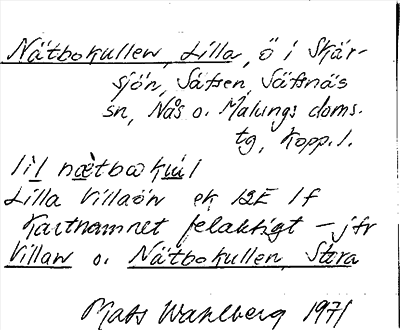 Nätbokullen, Lilla, ö i Skär-
sjön, Säfsen, Säfsnäs
sn, Nås o. Malungs doms.
tg, Kopp. l.
lìl nætbokul
Lilla Villaön ek 12E 1f
Kartnamnet felaktigt – jfr
Villan o. Nätbokullen, Stora
Mats Wahlberg 1971